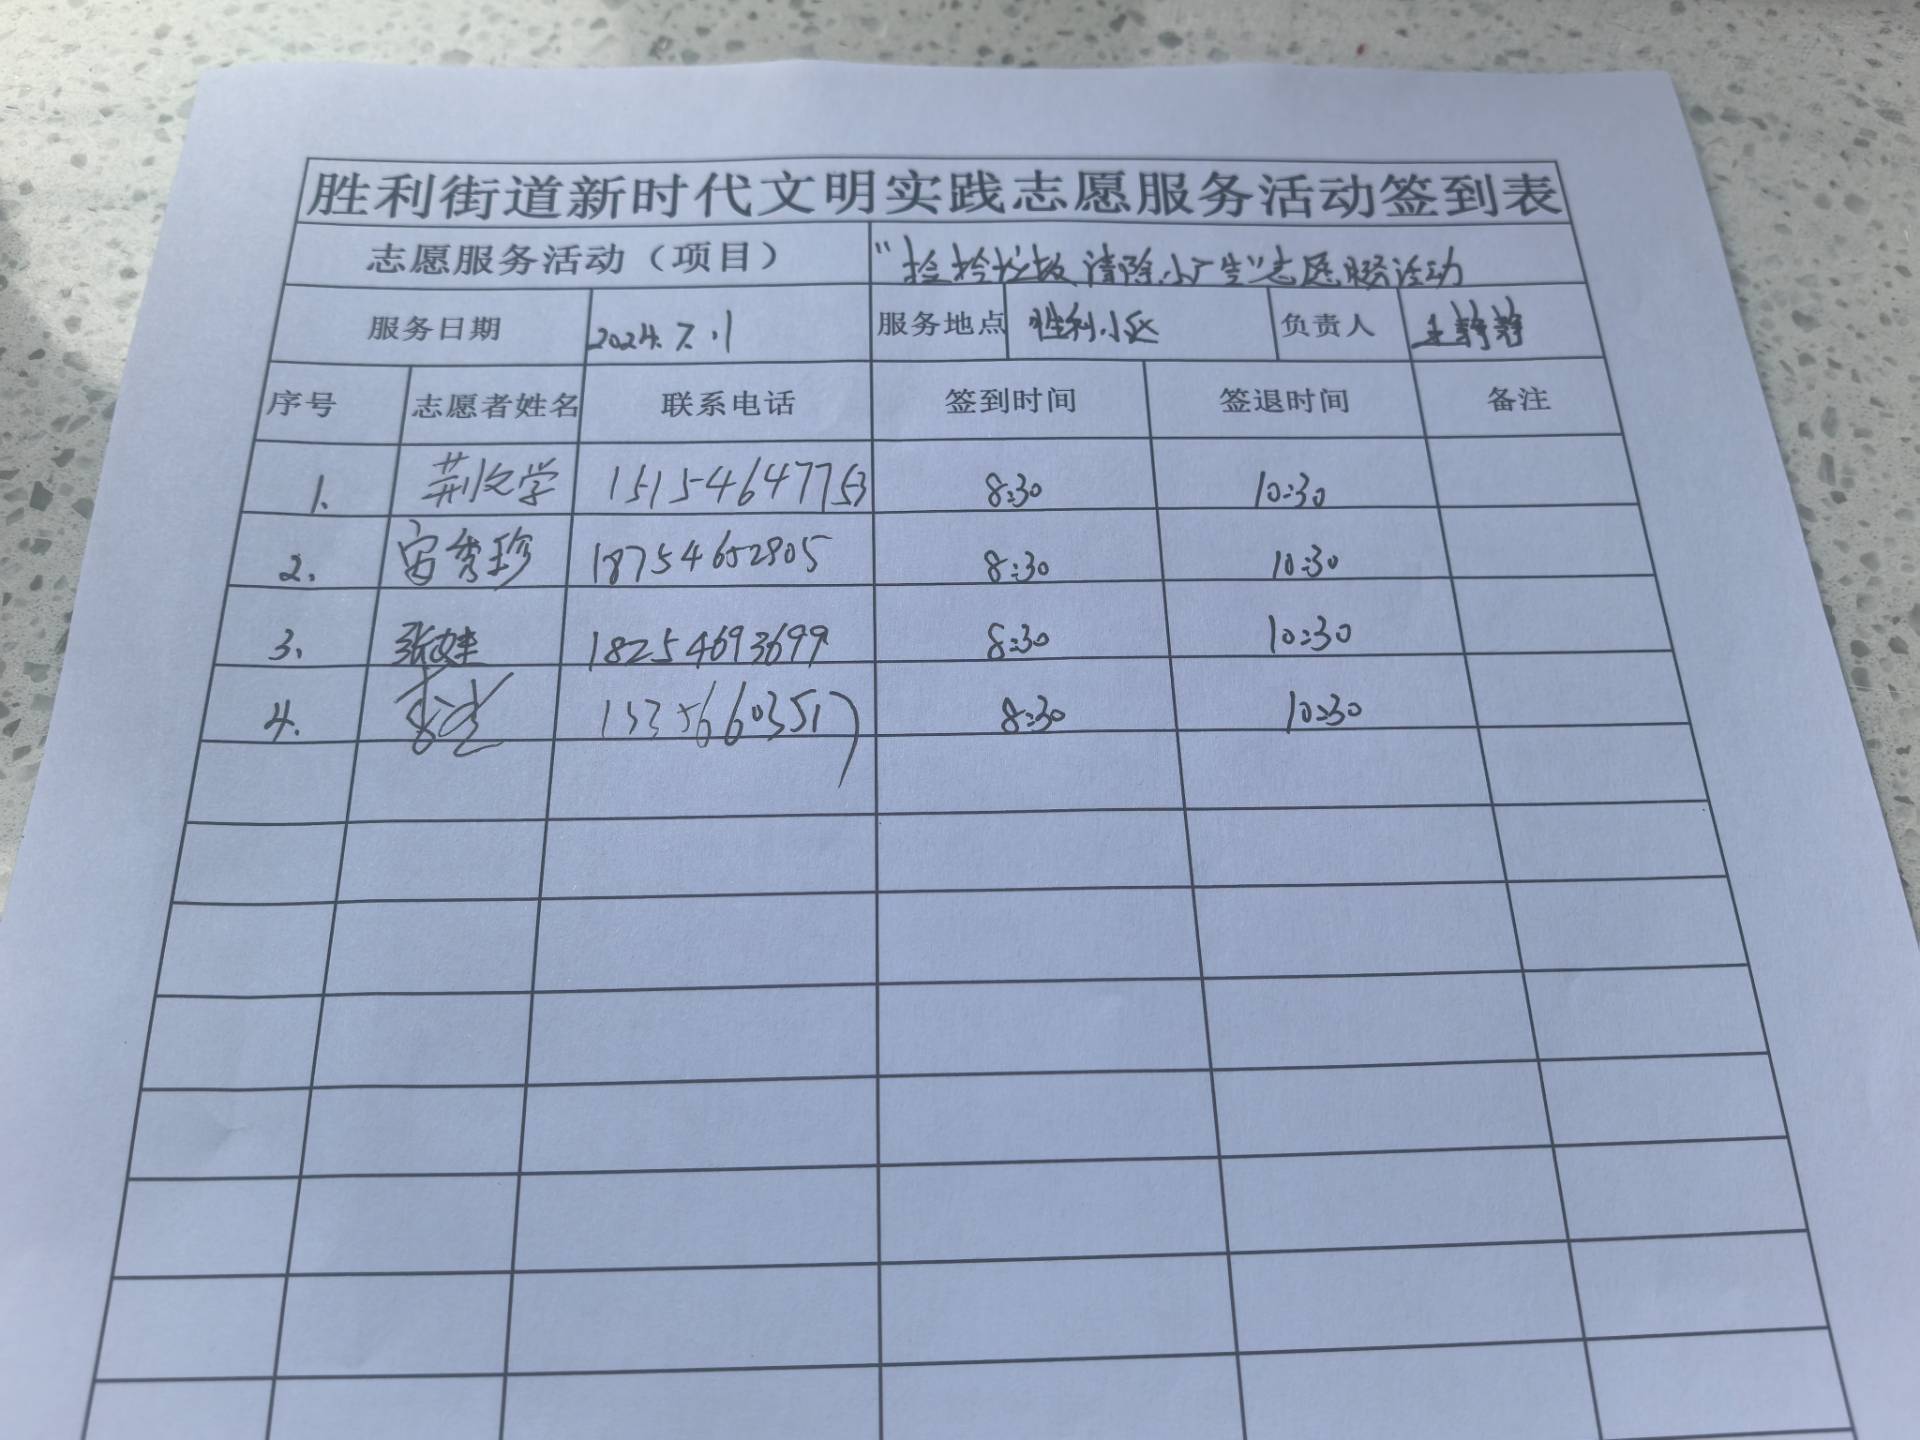 胜利街道新时代文明实践志愿服务活动签到表
志愿服务活动（项目） “捡拾垃圾 清除小广告”志愿服务活动
服务日期 2024.7.1 服务地点 胜利小区 负责人 王静静
序号 志愿者姓名 联系电话 签到时间 签退时间 备注
1. 荆文学 15154647753 8:30 10:30
2. 秀珍 18754652905 8:30 10:30
3. 张娃 18254693699 8:30 10:30
4. 15356603517 8:30 10:30